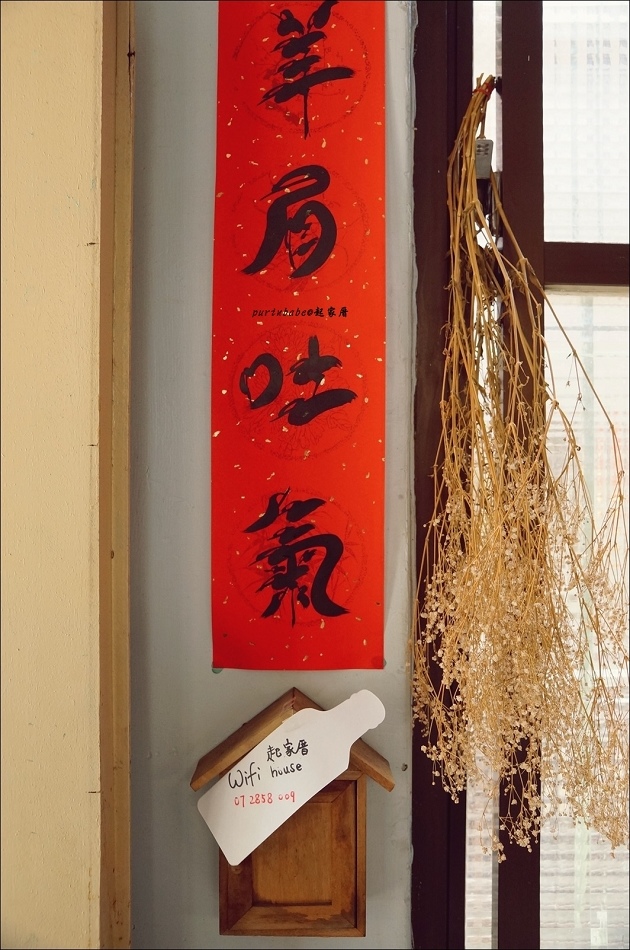 羊
眉
吐
氣
purtubabe@起家厝
起家厝
Wifi house
07 2858 009